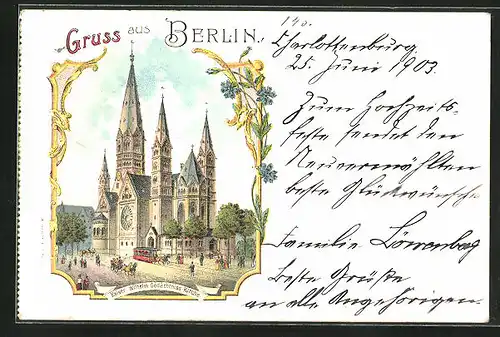 Gruss aus BERLIN.
140.
Charlottenburg
25. Juni 1903.
Zum Hochzeits-
feste sendet den
Neuvermählten
beste Glückwünsche
Familie Löwenberg
beste Grüße
an alle Angehörigen.
Kaiser Wilhelm Gedächtniss Kirche